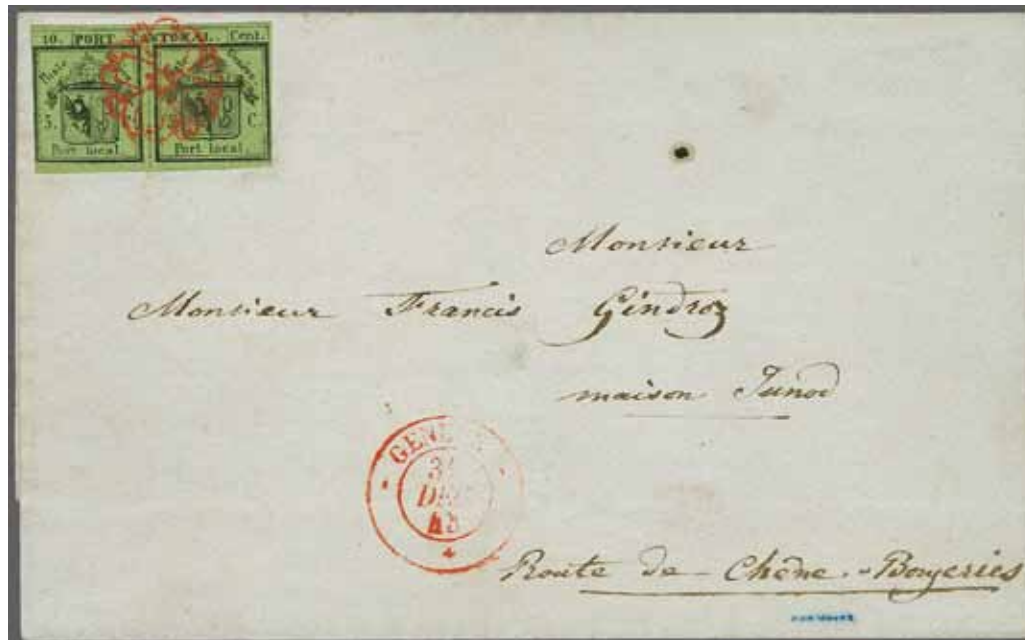 10. PORT CANTONAL. Cent.
Poste Genève
5. C.
Port local Port local
Monsieur
Monsieur Francis Gindroz
maison Junod
GENÈVE
31
DEC
45
Route de Chêne-Bougeries